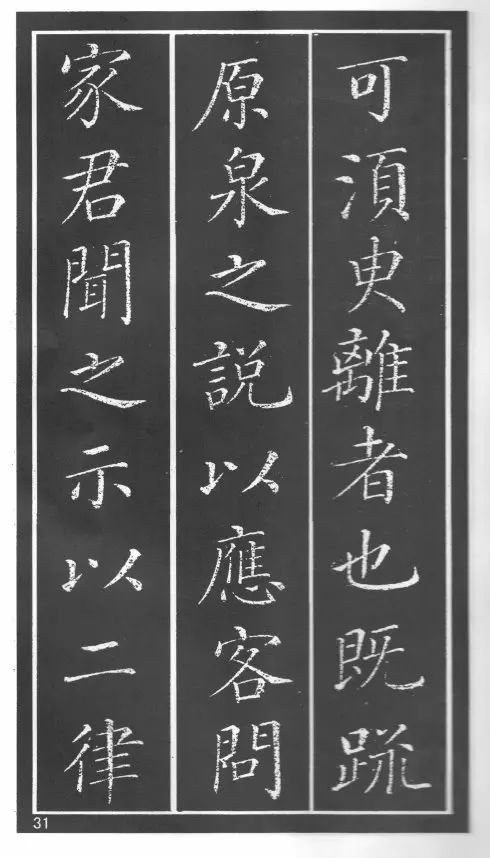 可湏臾離者也既䟽
原泉之説以應客問
家君聞之示以二律
31